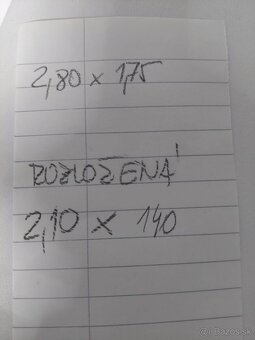 2,80 x 1,75
ROZLOŽENÁ
2,10 x 140
© Bazos.sk